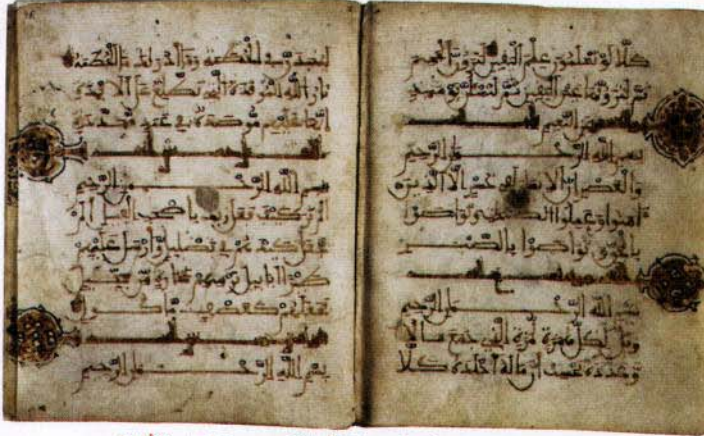 كلا لو تعلمون علم اليقين لترون الجحيم
ثم لترونها عين اليقين ثم لتسئلن يومئذ
عن النعيم
بسم الله الرحمن الرحيم
والعصر ان الانسن لفي خسر الا الذين
امنوا وعملوا الصلحت وتواصوا
بالحق وتواصوا بالصبر
بسم الله الرحمن الرحيم
ويل لكل همزة لمزة الذي جمع مالا
وعدده يحسب ان ماله اخلده كلا
لينبذن في الحطمة وما ادريك ما الحطمة
نار الله الموقدة التي تطلع على الافدة
انها عليهم موصدة في عمد ممددة
بسم الله الرحمن الرحيم
الم تر كيف فعل ربك باصحب الفيل الم
يجعل كيدهم في تضليل وارسل عليهم
طيرا ابابيل ترميهم بحجارة من سجيل
فجعلهم كعصف ماكول
بسم الله الرحمن الرحيم